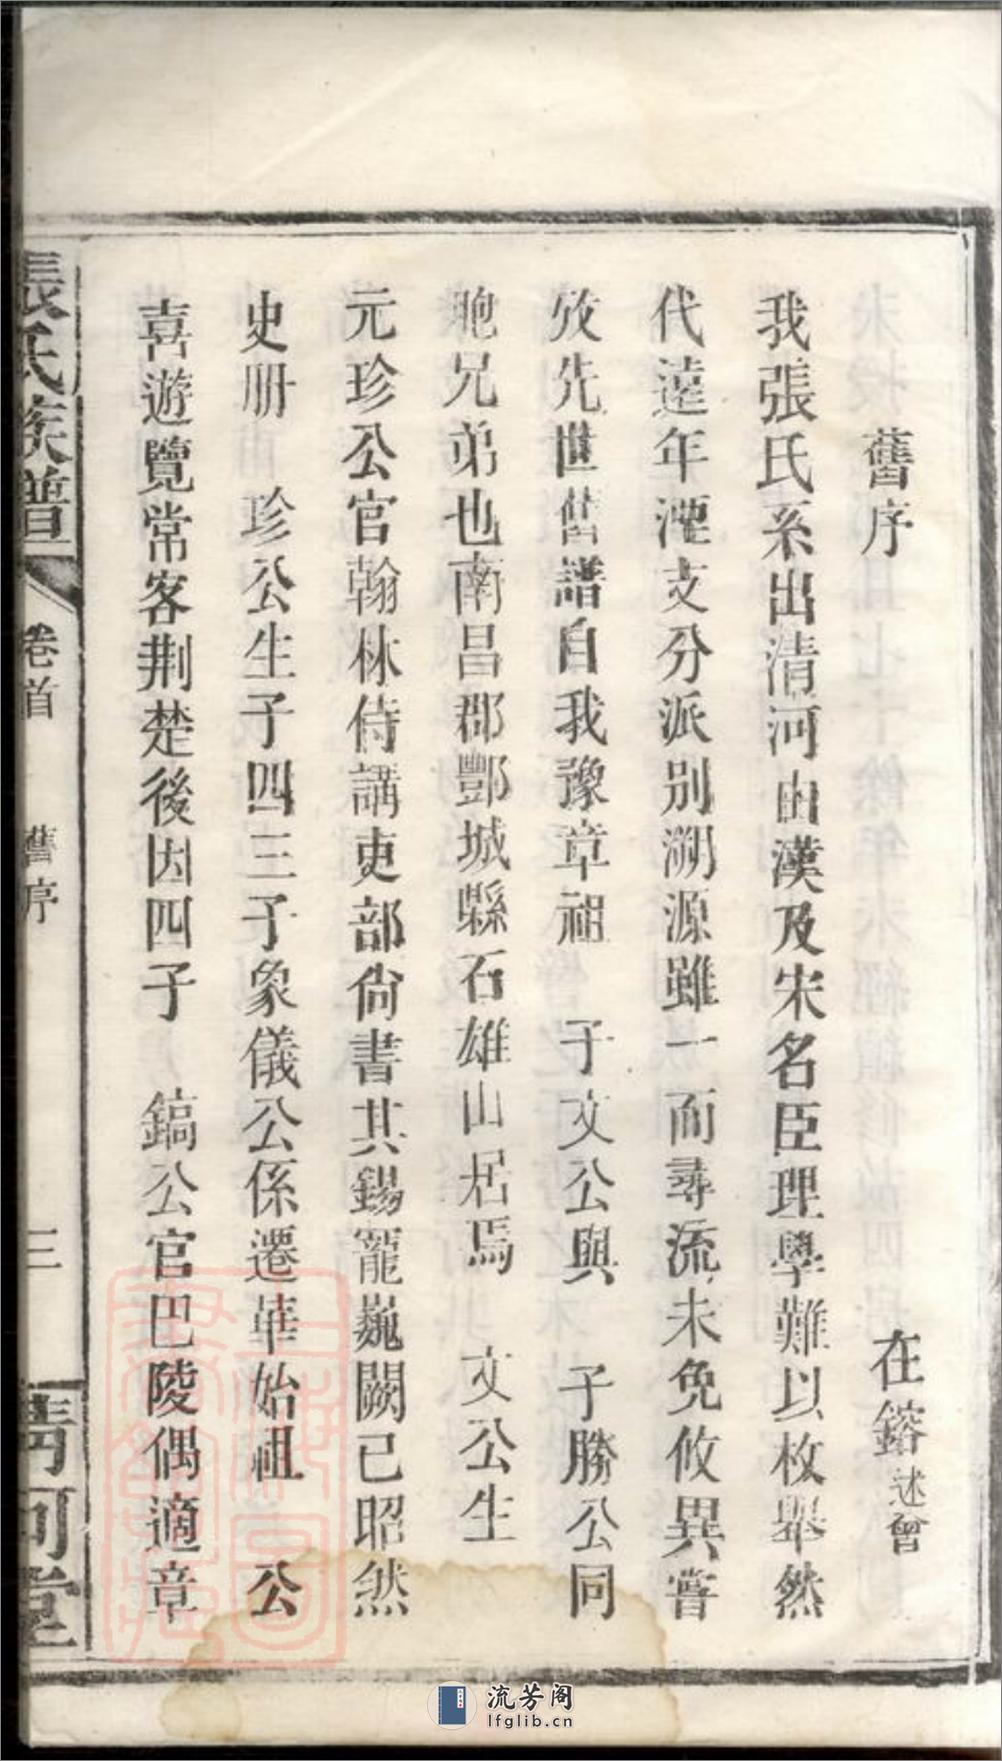 舊序
在鎔述曾
我張氏系出清河由漢及宋名臣理學難以枚舉然
代遠年湮支分派別溯源雖一而尋流未免攸異嘗
攷先世舊譜自我豫章祖 于文公與 子勝公同
胞兄弟也南昌郡酆城縣石雄山居焉 文公生
元珍公官翰林侍講吏部尙書其錫寵巍闕已昭然
史册 珍公生子四三子象儀公係遷華始祖 公
喜遊覽常客荆楚後因四子 鎬公官巴陵偶適章
張氏族譜 卷首 舊序 三 清河堂
流芳阁
lfglib.cn